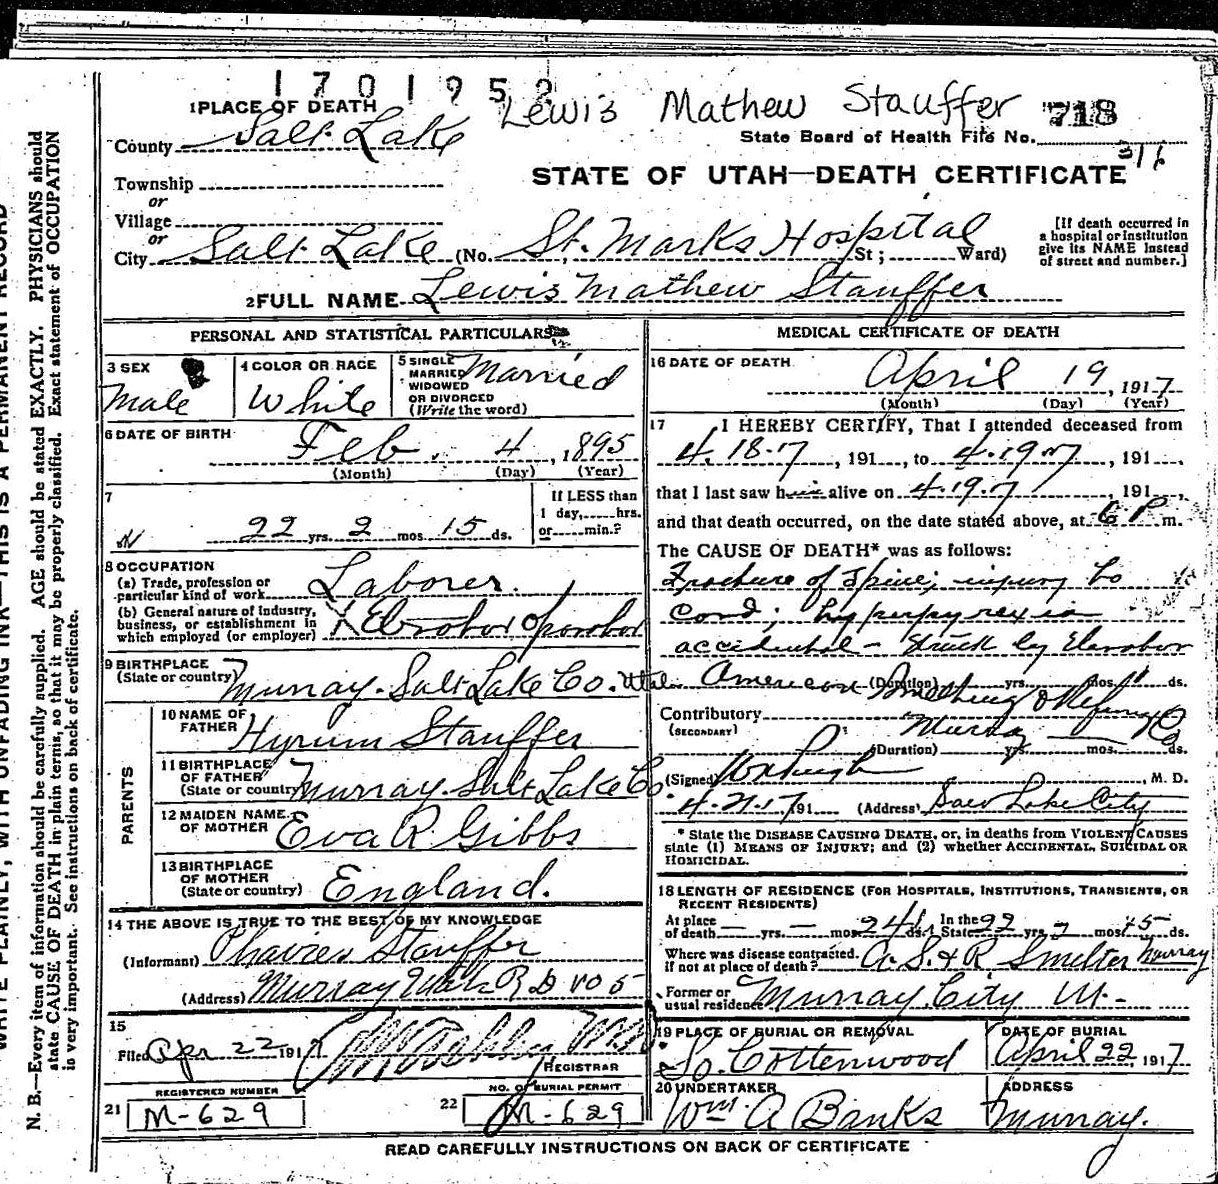 1701952
Lewis Mathew Stauffer 718
1 PLACE OF DEATH
State Board of Health File No.
316
County Salt Lake
STATE OF UTAH—DEATH CERTIFICATE
Township
or
Village
or
City Salt Lake (No. St. Marks Hospital St; Ward)
[If death occurred in
a hospital or institution
give its NAME instead
of street and number.]
2 FULL NAME Lewis Mathew Stauffer
PERSONAL AND STATISTICAL PARTICULARS
3 SEX
Male
4 COLOR OR RACE
White
5 SINGLE
MARRIED
WIDOWED
OR DIVORCED
(Write the word)
Married
6 DATE OF BIRTH
Feb. 4, 1895
(Month) (Day) (Year)
7
22 yrs. 2 mos. 15 ds.
If LESS than
1 day, hrs.
or min.?
8 OCCUPATION
(a) Trade, profession or
particular kind of work Laborer.
(b) General nature of industry,
business, or establishment in
which employed (or employer)
9 BIRTHPLACE
(State or country) Murray. Salt Lake Co. Utah.
PARENTS
10 NAME OF
FATHER Hyrum Stauffer
11 BIRTHPLACE
OF FATHER
(State or country) Murray. Salt Lake Co
12 MAIDEN NAME
OF MOTHER Eva R Gibbs
13 BIRTHPLACE
OF MOTHER
(State or country) England.
14 THE ABOVE IS TRUE TO THE BEST OF MY KNOWLEDGE
(Informant) Stauffer
(Address) Murray Utah R D No 5
15
Filed Apr 22 1917
REGISTRAR
REGISTERED NUMBER
21 M-629
NO. OF BURIAL PERMIT
22 M-629
MEDICAL CERTIFICATE OF DEATH
16 DATE OF DEATH
April 19, 1917
(Month) (Day) (Year)
17 I HEREBY CERTIFY, That I attended deceased from
4.18.17, 191, to 4.19.17, 191,
that I last saw him alive on 4.19.17, 191,
and that death occurred, on the date stated above, at 6 P m.
The CAUSE OF DEATH* was as follows:
Fracture of Spine; injury to
cord; hyperpyrexia
accidental - Struck by Elevator
American Smelting & Refining Co
(Duration) yrs. mos. ds.
Contributory
(SECONDARY)
Murray
(Duration) yrs. mos. ds.
(Signed) , M. D.
4.21.17 191 (Address) Salt Lake City
* State the DISEASE CAUSING DEATH, or, in deaths from VIOLENT CAUSES
state (1) MEANS OF INJURY; and (2) whether ACCIDENTAL, SUICIDAL OR
HOMICIDAL.
18 LENGTH OF RESIDENCE (FOR HOSPITALS, INSTITUTIONS, TRANSIENTS, OR
RECENT RESIDENTS)
At place
of death — yrs. — mos. ds. In the State 22 yrs. 2 mos. 15 ds.
Where was disease contracted.
if not at place of death? A. S. & R Smelter Murray
Former or
usual residence Murray City Ut.
19 PLACE OF BURIAL OR REMOVAL
So. Cottenwood
DATE OF BURIAL
April 22 1917
20 UNDERTAKER
Wm A Banks
ADDRESS
Murray.
READ CAREFULLY INSTRUCTIONS ON BACK OF CERTIFICATE
WRITE PLAINLY, WITH UNFADING INK—THIS IS A PERMANENT RECORD
N. B.—Every item of information should be carefully supplied. AGE should be stated EXACTLY. PHYSICIANS should
state CAUSE OF DEATH in plain terms, so that it may be properly classified. Exact statement of OCCUPATION
is very important. See instructions on back of certificate.